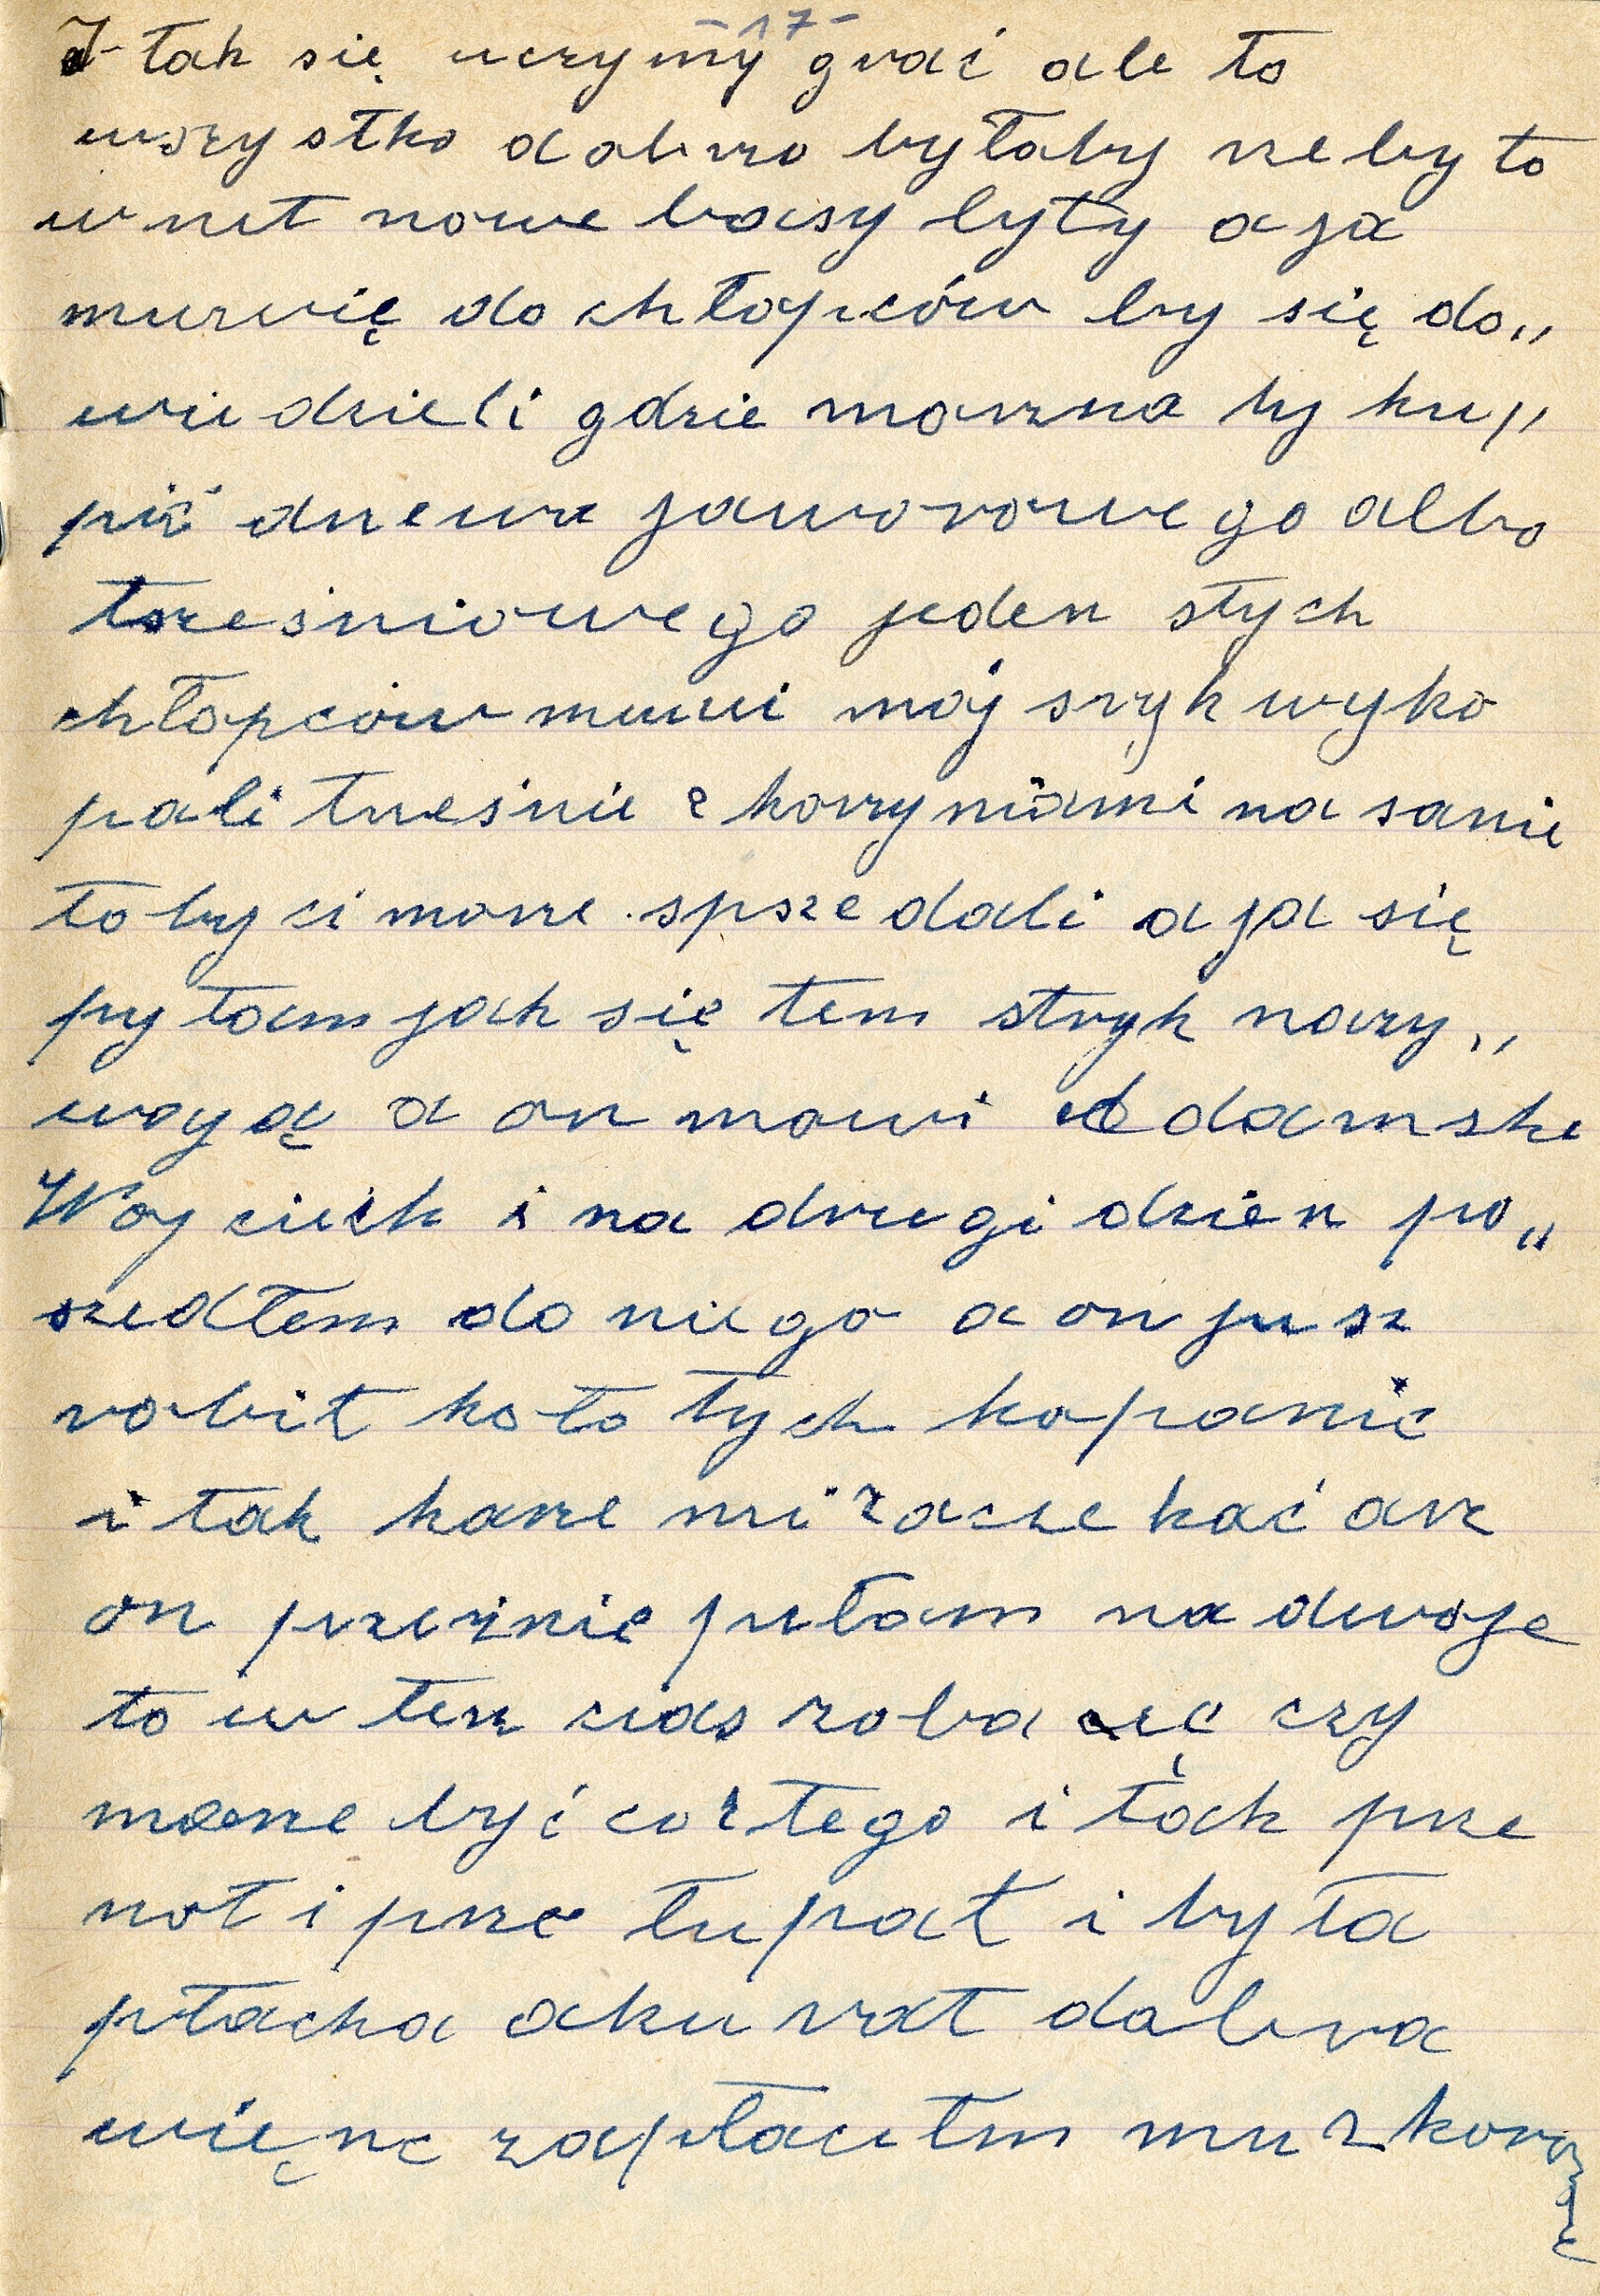 -17-
I tak się uczymy grać ale to
wszystko dobrze byłoby żeby to
wnet nowe basy były a ja
murwię do chłopców by się do„
wiedzieli gdzie morzna by ku„
pić drzewa jaworowego albo
trześniowego jeden stych
chłopców muwi mój stryk wyko
pali trześnie z korzyniami na sanie
to by ci morze spszedali a ja się
pytam jak się tem stryk nazy„
woyą a on mowi Adamske
Wojciech i na drugi dzien po„
szedłem do niego a on jusz
robił koło tych kopanic
i tak karze mi zaczekać arz
on przeżnie pułam na dwoje
to w tenczas zobaczę czy
morze być coś tego i tak prze
rzoł i prze łupał i była
płacha akurat dobra
więnc zapłaciłem mu 2 korony